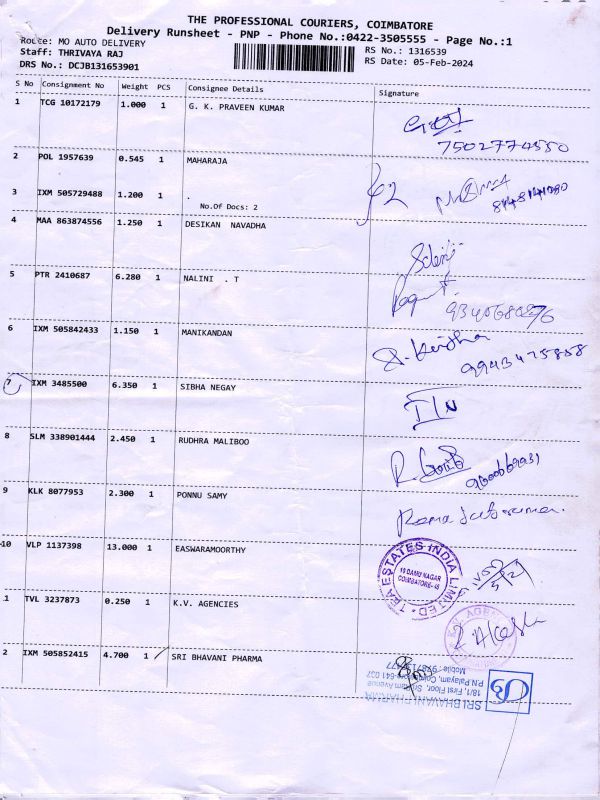 THE PROFESSIONAL COURIERS, COIMBATORE
Delivery Runsheet - PNP - Phone No.:0422-3505555 - Page No.:1
Route: MO AUTO DELIVERY
RS No.: 1316539
Staff: THRIVAYA RAJ
RS Date: 05-Feb-2024
DRS No.: DCJB131653901
S No Consignment No Weight PCS Consignee Details Signature
1 TCG 10172179 1.000 1 G. K. PRAVEEN KUMAR
7502774550
2 POL 1957639 0.545 1 MAHARAJA
3 IXM 505729488 1.200 1 .
No.Of Docs: 2
4 MAA 863874556 1.250 1 DESIKAN NAVADHA
5 PTR 2410687 6.280 1 NALINI . T
6 IXM 505842433 1.150 1 MANIKANDAN
9943475858
7 IXM 3485500 6.350 1 SIBHA NEGAY
8 SLM 338901444 2.450 1 RUDHRA MALIBOO
9 KLK 8077953 2.300 1 PONNU SAMY
10 VLP 1137398 13.000 1 EASWARAMOORTHY
TEA ESTATES INDIA LIMITED
COIMBATORE-45
1 TVL 3237873 0.250 1 K.V. AGENCIES
K.V. AGEN
2 IXM 505852415 4.700 1 SRI BHAVANI PHARMA
SRI BHAVANI PHARMA
18/1, First Floor,